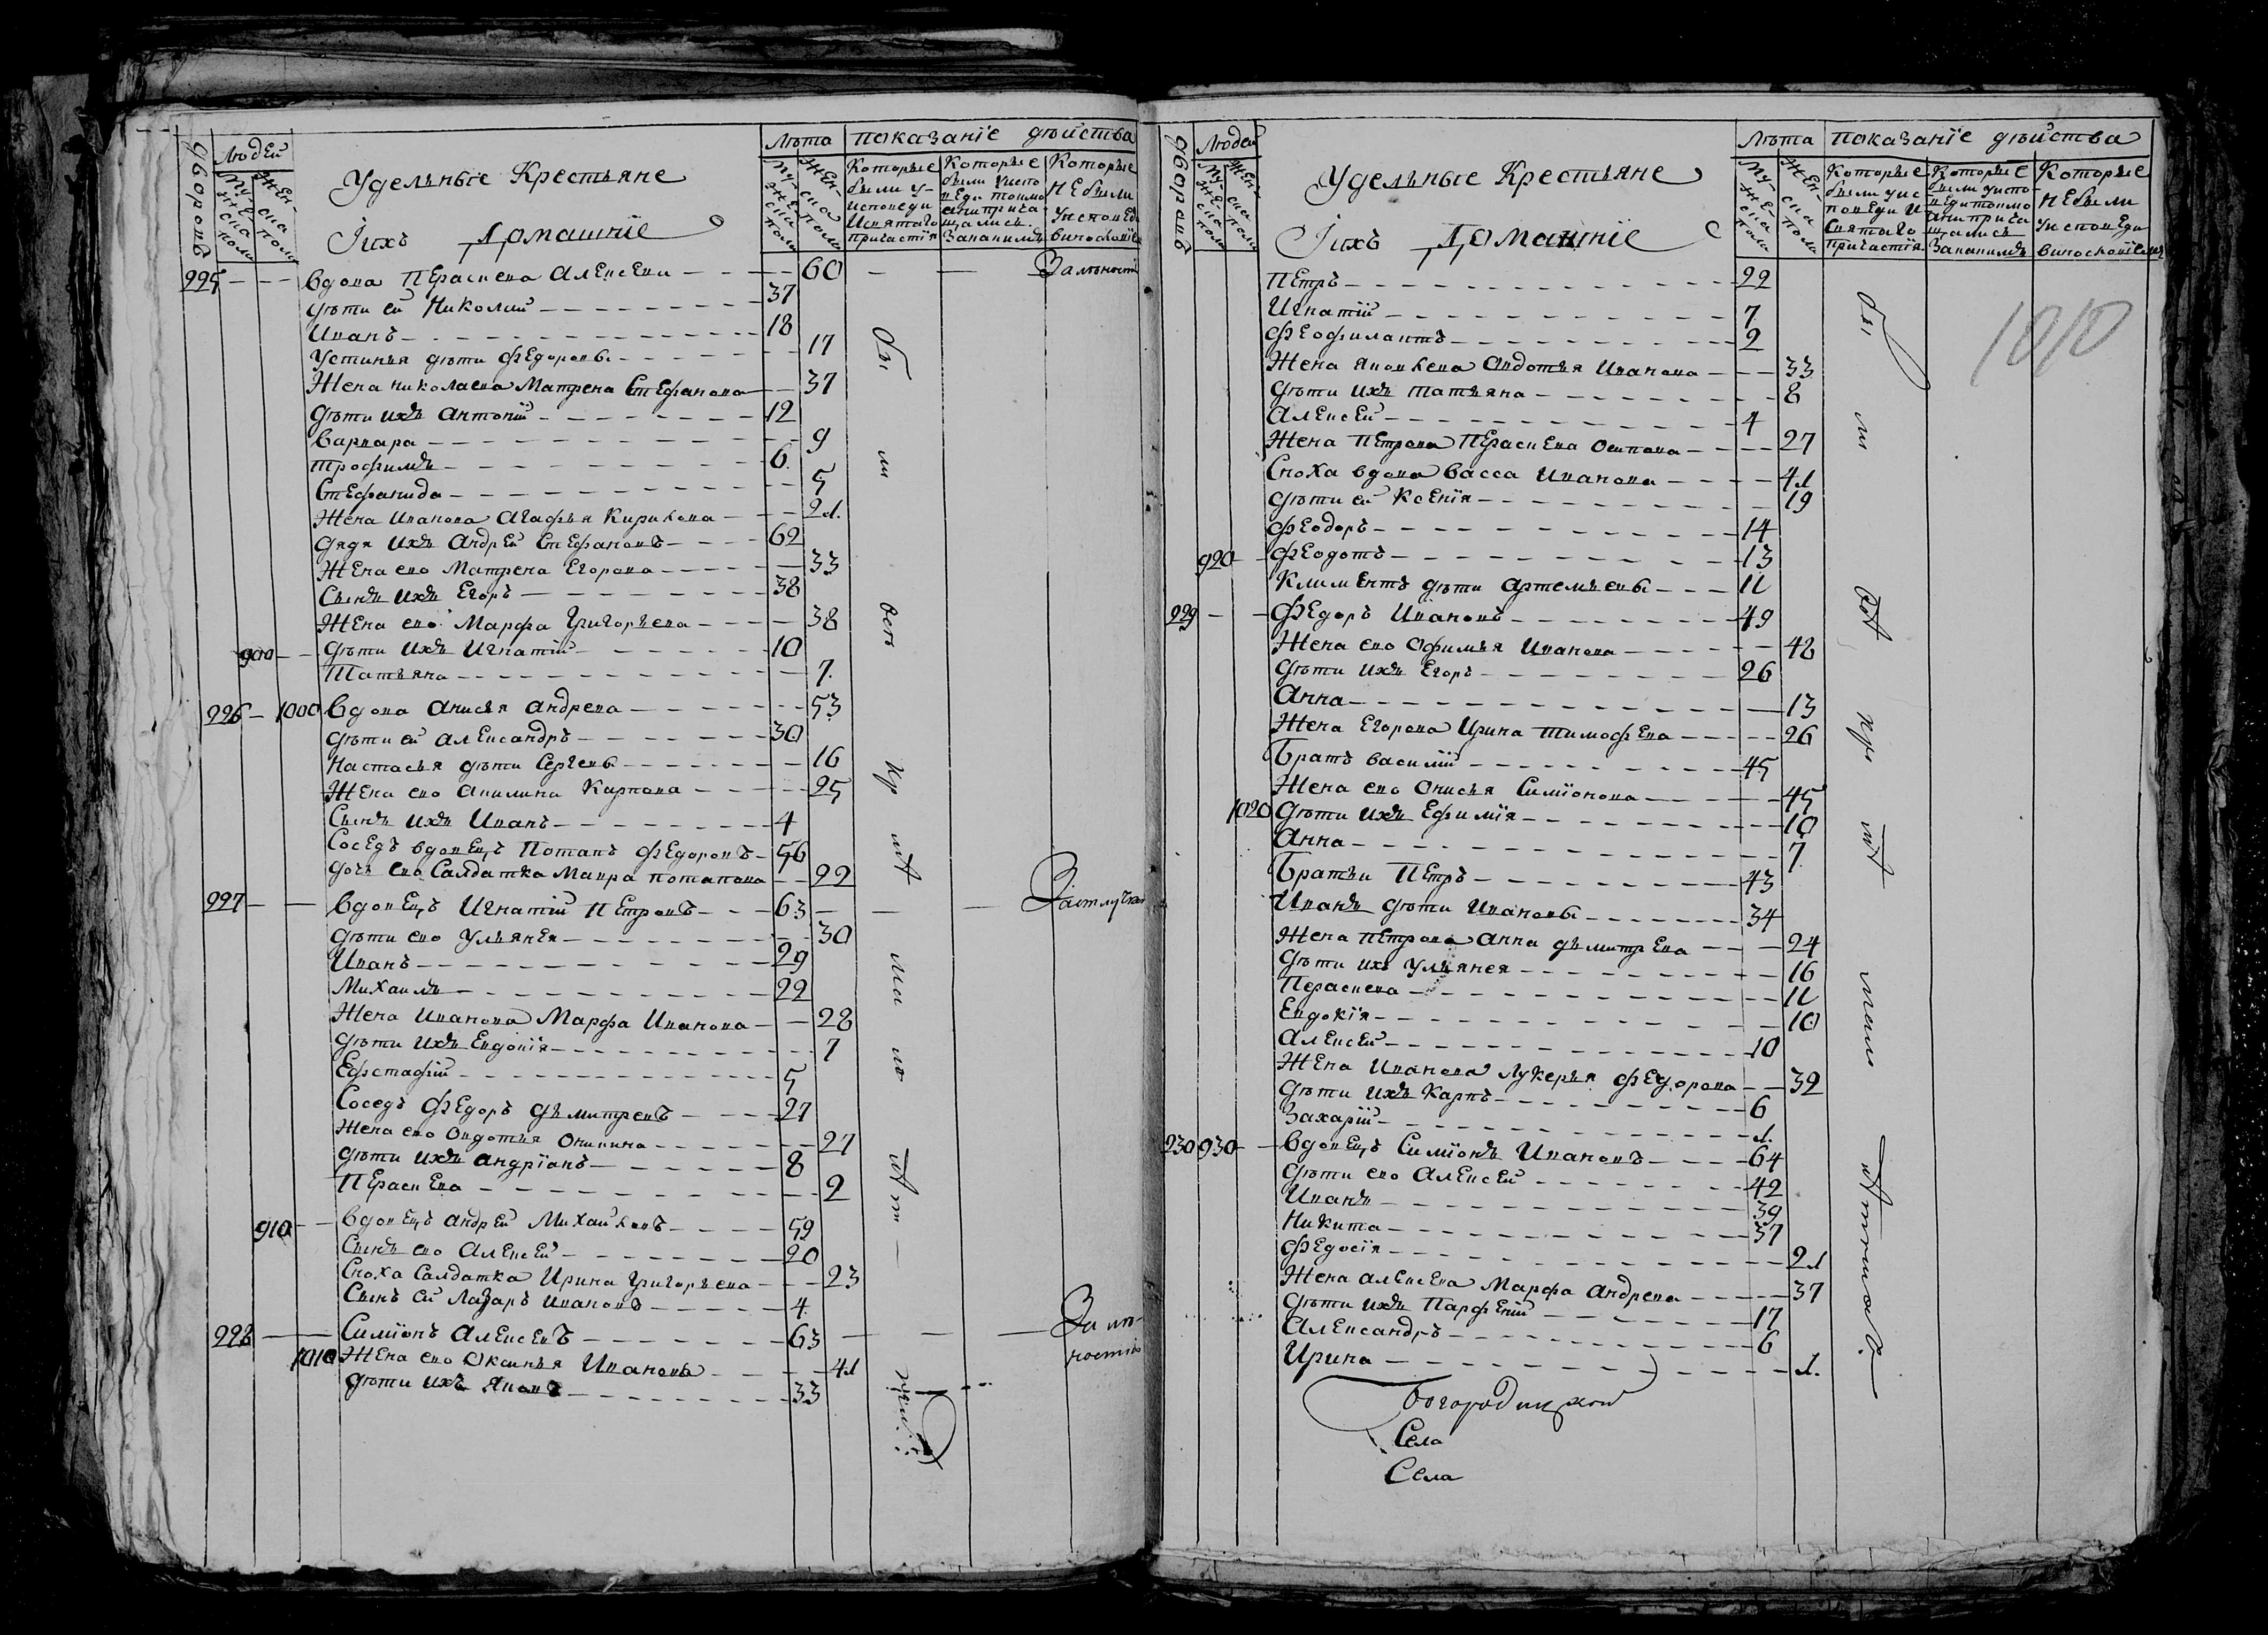 дворовъ Людей Лѣта показанїе дѣйства
Мужеска пола Женска пола Удельныїе Крестьяне Мужеска пола Женска пола Которые были у исповеди и святаго причастїя Которые были у исповеди токмо а не причащались Которые не были у исповеди
Iихъ Домашнїе
225 вдова Пераскева Алексеева 60 За лѣностїю
дѣти ей Николай 37
Иванъ 18
Устинья дѣти Федоровы 17
Жена николаева Матрена Стефанова 37
дѣти ихъ Антонїй 12
Варвара 9
Трофимъ 6
Стефанида 5
Жена Иванова Агафья Кирилова 21
дядя ихъ Андрей Стефановъ 62
Жена ево Матрена Егорова 33
Сынъ ихъ Егоръ 38
Жена ево Марфа Григорьева 38
900 дѣти ихъ Игнатїй 10
Татьяна 7
226 1000 Вдова Анисья Андрева 53
дѣти ей Александръ 30
Настасья дѣти Сергевы 16
Жена ево Акилина Карпова 25
Сынъ ихъ Иванъ 4
Соседъ вдовецъ Потапъ Федоровъ 56
дочь ево Салдатка Мавра потапова 22
227 Вдовецъ Игнатїй Петровъ 63
дѣти ево Ульянея 30
Иванъ 29
Михаилъ 22
Жена Иванова Марфа Иванова 28
дѣти ихъ Евдокїя 7
Ефстафїй 5
Соседъ Федоръ дьмитревъ 27
Жена ево Овдотья Оникина 27
дѣти ихъ Андрїанъ 8
Пераскева 2
910 Вдовецъ Андрей Михайловъ 59
Сынъ ево Алексей 20
Сноха Салдатка Ирина Григорьева 23
Сынъ ей Лазаръ Ивановъ 4
228 Симїонъ Алексевъ 63 За лѣностїю
1010 Жена ево Оксинья Иванова 41
дѣти ихъ Яковъ 33
дворовъ Людей Лѣта показанїе дѣйства
Мужеска пола Женска пола Удельные Крестьяне Мужеска пола Женска пола Которые были у исповеди и святаго причастїя Которые были у исповеди токмо а не причащались Которые не были у исповеди
Iихъ Домашнїе
Петръ 22
Игнатїй 7
Феофилактъ 2
Жена Яковлева Овдотья Иванова 33
дѣти ихъ татьяна 8
Алексей 4
Жена Петрова Пераскева Осипова 27
Сноха вдова Васса Иванова 41
дѣти ей Ксенїя 19
Феодоръ 14
920 Феодотъ 13
Климентъ дѣти Артемьевы 11
229 Федоръ Ивановъ 49
Жена ево Офимья Иванова 48
дѣти ихъ Егоръ 26
Анна 13
Жена Егорова Ирина Тимофева 26
Братъ василїй 45
Жена ево Онисья Симїонова 45
1020 дѣти ихъ Ефимїя 10
Анна 7
Братьи Петръ 43
Иванъ дѣти Ивановы 34
Жена Петрова Анна дьмитрева 24
дѣти ихъ Ульянея 16
Пераскева 11
Евдокїя 10
Алексей 10
Жена Иванова Лукерья Федорова 32
дѣти ихъ Карпъ 6
Захарїй 1
230 930 Вдовецъ Симїонъ Ивановъ 64
дѣти ево Алексей 42
Иванъ 39
Никита 37
Федосїя 21
Жена алексева Марфа Андрева 37
дѣти ихъ Парфенїй 17
Александръ 6
Ирина 1
1010
Села
Села